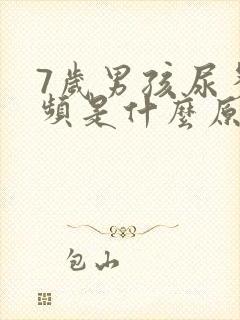 7歲男孩尿
頻是什麼原
包山